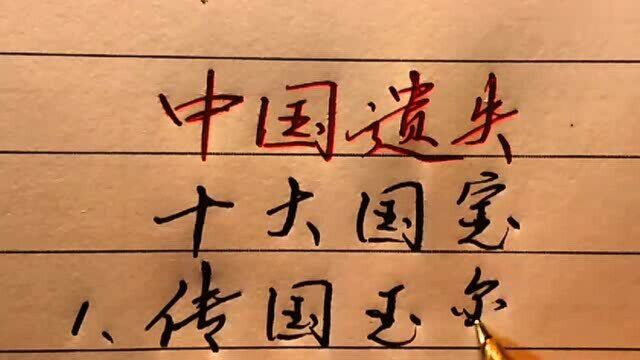 中国遗失
十大国宝
1、传国玉尔